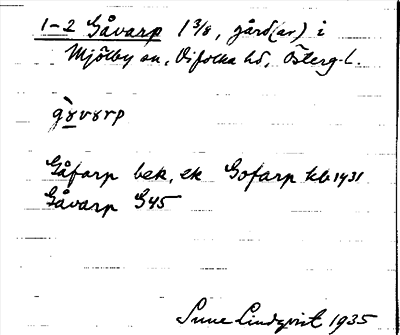 1-2 Gåvarp 1 3/8, gård(ar) i
Mjölby sn, Vifolka hd, Österg. l.
gɤ̀vɤrp
Gåfarp bek, ek Gofarp kb 1431
Gåvarp G45
Sune Lindqvist 1935